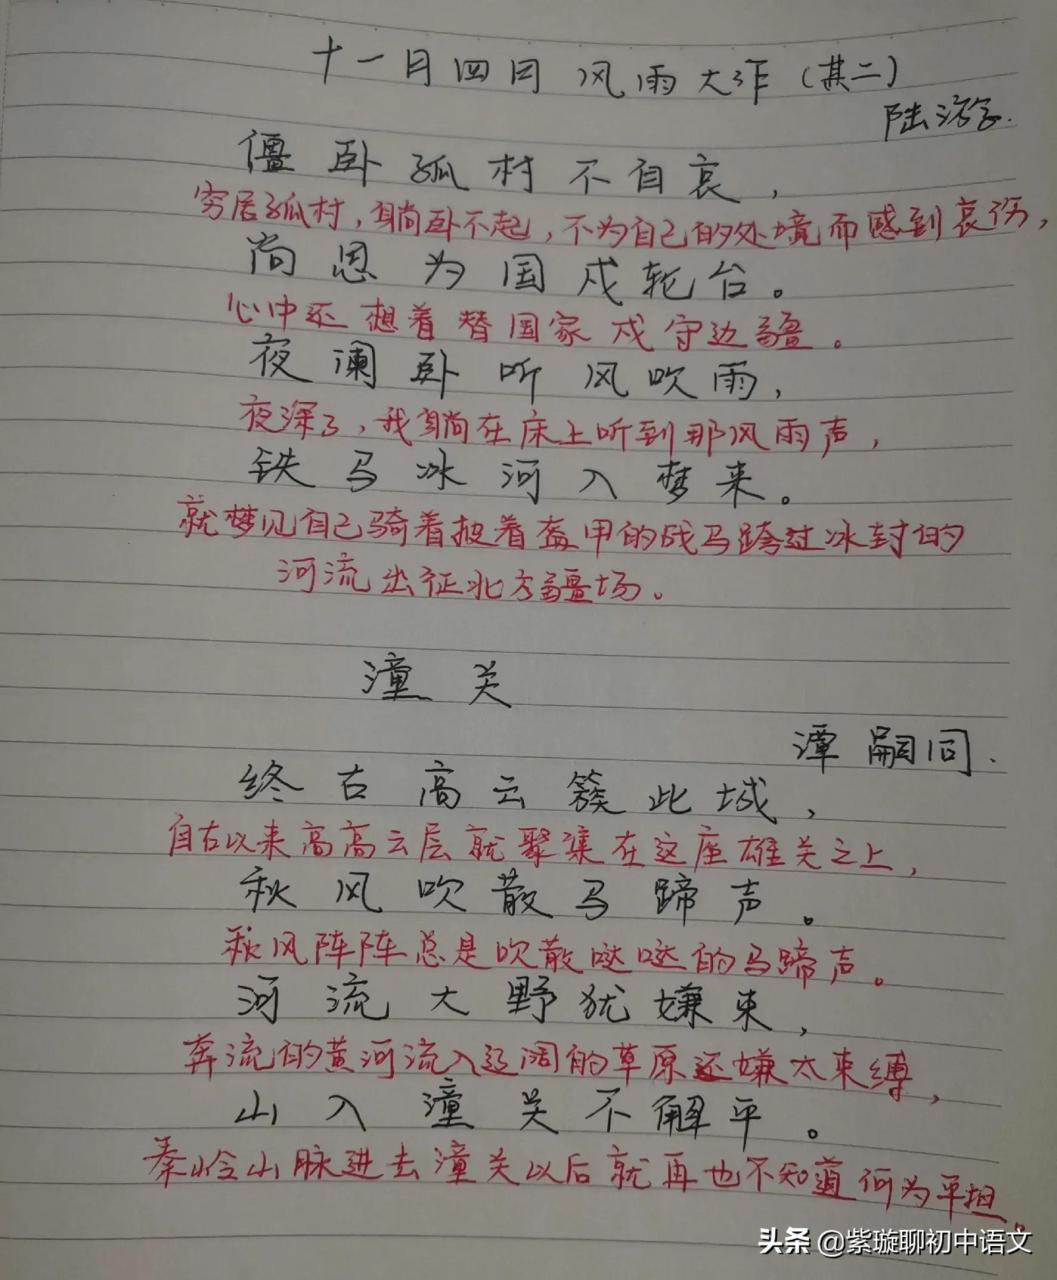 十一月四日 风雨大作(其二)
陆游
僵卧孤村不自哀,
穷居孤村,躺卧不起,不为自己的处境而感到哀伤,
尚思为国戍轮台。
心中还想着替国家戍守边疆。
夜阑卧听风吹雨,
夜深了,我躺在床上听到那风雨声,
铁马冰河入梦来。
就梦见自己骑着披着盔甲的战马跨过冰封的
河流出征北方疆场。
潼关
谭嗣同.
终古高云簇此城,
自古以来高高云层就聚集在这座雄关之上,
秋风吹散马蹄声。
秋风阵阵总是吹散哒哒的马蹄声。
河流大野犹嫌束,
奔流的黄河流入辽阔的草原还嫌太束缚,
山入潼关不解平。
秦岭山脉进去潼关以后就再也不知道何为平坦。
头条 @紫璇聊初中语文